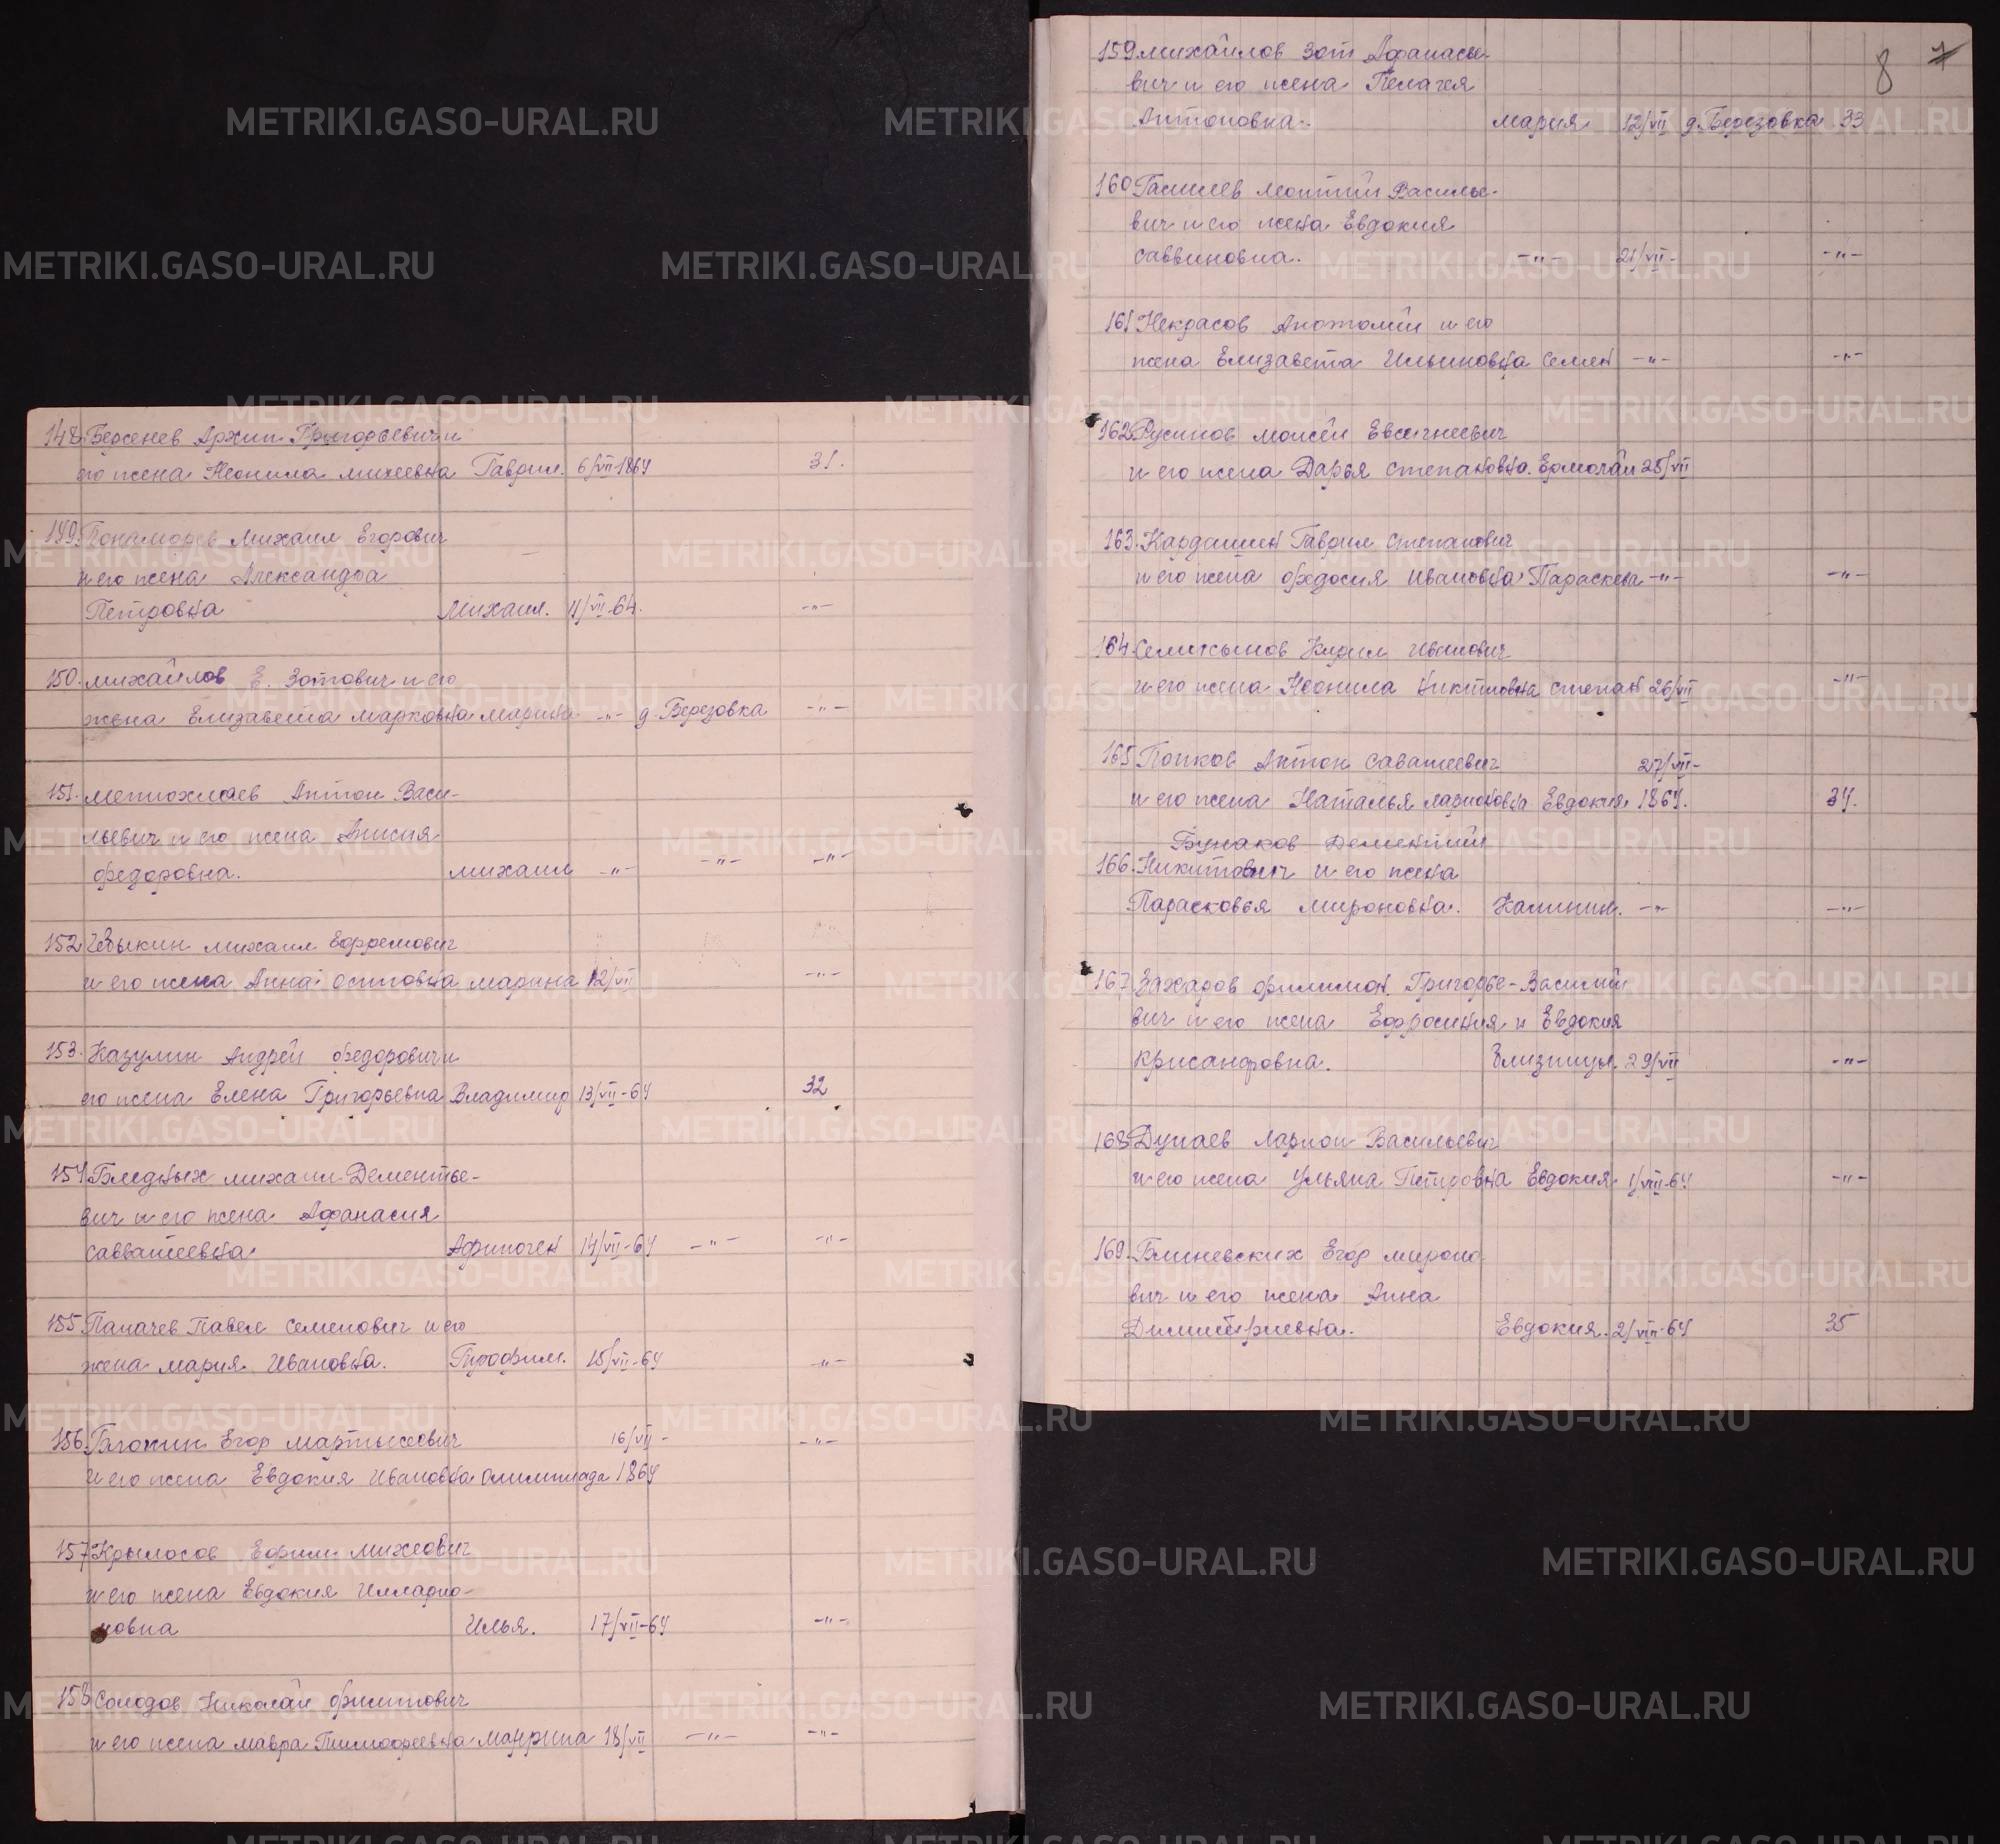 148. Берсенев Архип Григорьевич и
его жена Неонила Михеевна Гаврил. 6/VII 1864 31.
149. Пономорев Михаил Егорович
и его жена Александра
Петровна Михаил. 11/VII-64. -"-
150. Михайлов Е. Зотович и его
жена Елизавета Марковна Марина -"- д. Березовка -"-
151. Антон Васи-
льевич и его жена Анисия
Федоровна. Михаил -"- -"- -"-
152 Михаил Ефремович
и его жена Анна Осиповна Марина 12/VII -"-
153. Казулин Андрей Федорович и
его жена Елена Григорьевна Владимир 13/VII-64 32
154 Бледных Михаил Дементье-
вич и его жена Афанасия
Савватеевна. Афиноген 14/VII-64 -"- -"-
155 Паначев Павел Семенович и его
жена Мария Ивановна. 15/VII-64 -"-
156. Егор 16/VII- -"-
и его жена Евдокия Ивановна Олимпиада 1864
157 Крылосов Ефим Михеович
и его жена Евдокия Илларио-
новна Илья. 17/VII-64 -"-
158 Солодов Николай Филипович
и его жена Мавра Тимофеевна 18/VII -"- -"-
8 7
159. Михайлов Зот Афанасье-
вич и его жена Пелагея
Антоновна. Мария 12/VII д. Березовка 33
160 Леонтий Василье-
вич и его жена Евдокия
Саввиновна. -"- 21/VII- -"-
161 Некрасов Анатолий и его
жена Елизавета Ильиновна Семен -"- -"-
162. Русинов Моисей Евсигнеевич
и его жена Дарья Степановна. Ермолай 25/VII
163. Кардашин Гаврил Степанович
и его жена Федосия Ивановна Параскева -"- -"-
164. Кирил Иванович
и его жена Неонила Степан 26/VII -"-
165 Попков Антон Саватеевич 27/VII-
и его жена Наталья Ларионовна Евдокия. 1864. 34.
Бунаков Дементий
166. Никитович и его жена
Парасковья Мироновна. Калиник. -"- -"-
167. Захаров Филимон Григорье- Василий
вич и его жена Ефросиния и Евдокия
Крисанфовна. близницы. 29/VII -"-
168 Дунаев Ларион Васильевич
и его жена Ульяна Петровна Евдокия. 1/VIII-64 -"-
169. Блиневских Егор Мироно-
вич и его жена Анна
Димитриевна. Евдокия. 2/VIII-64 35
METRIKI.GASO-URAL.RU